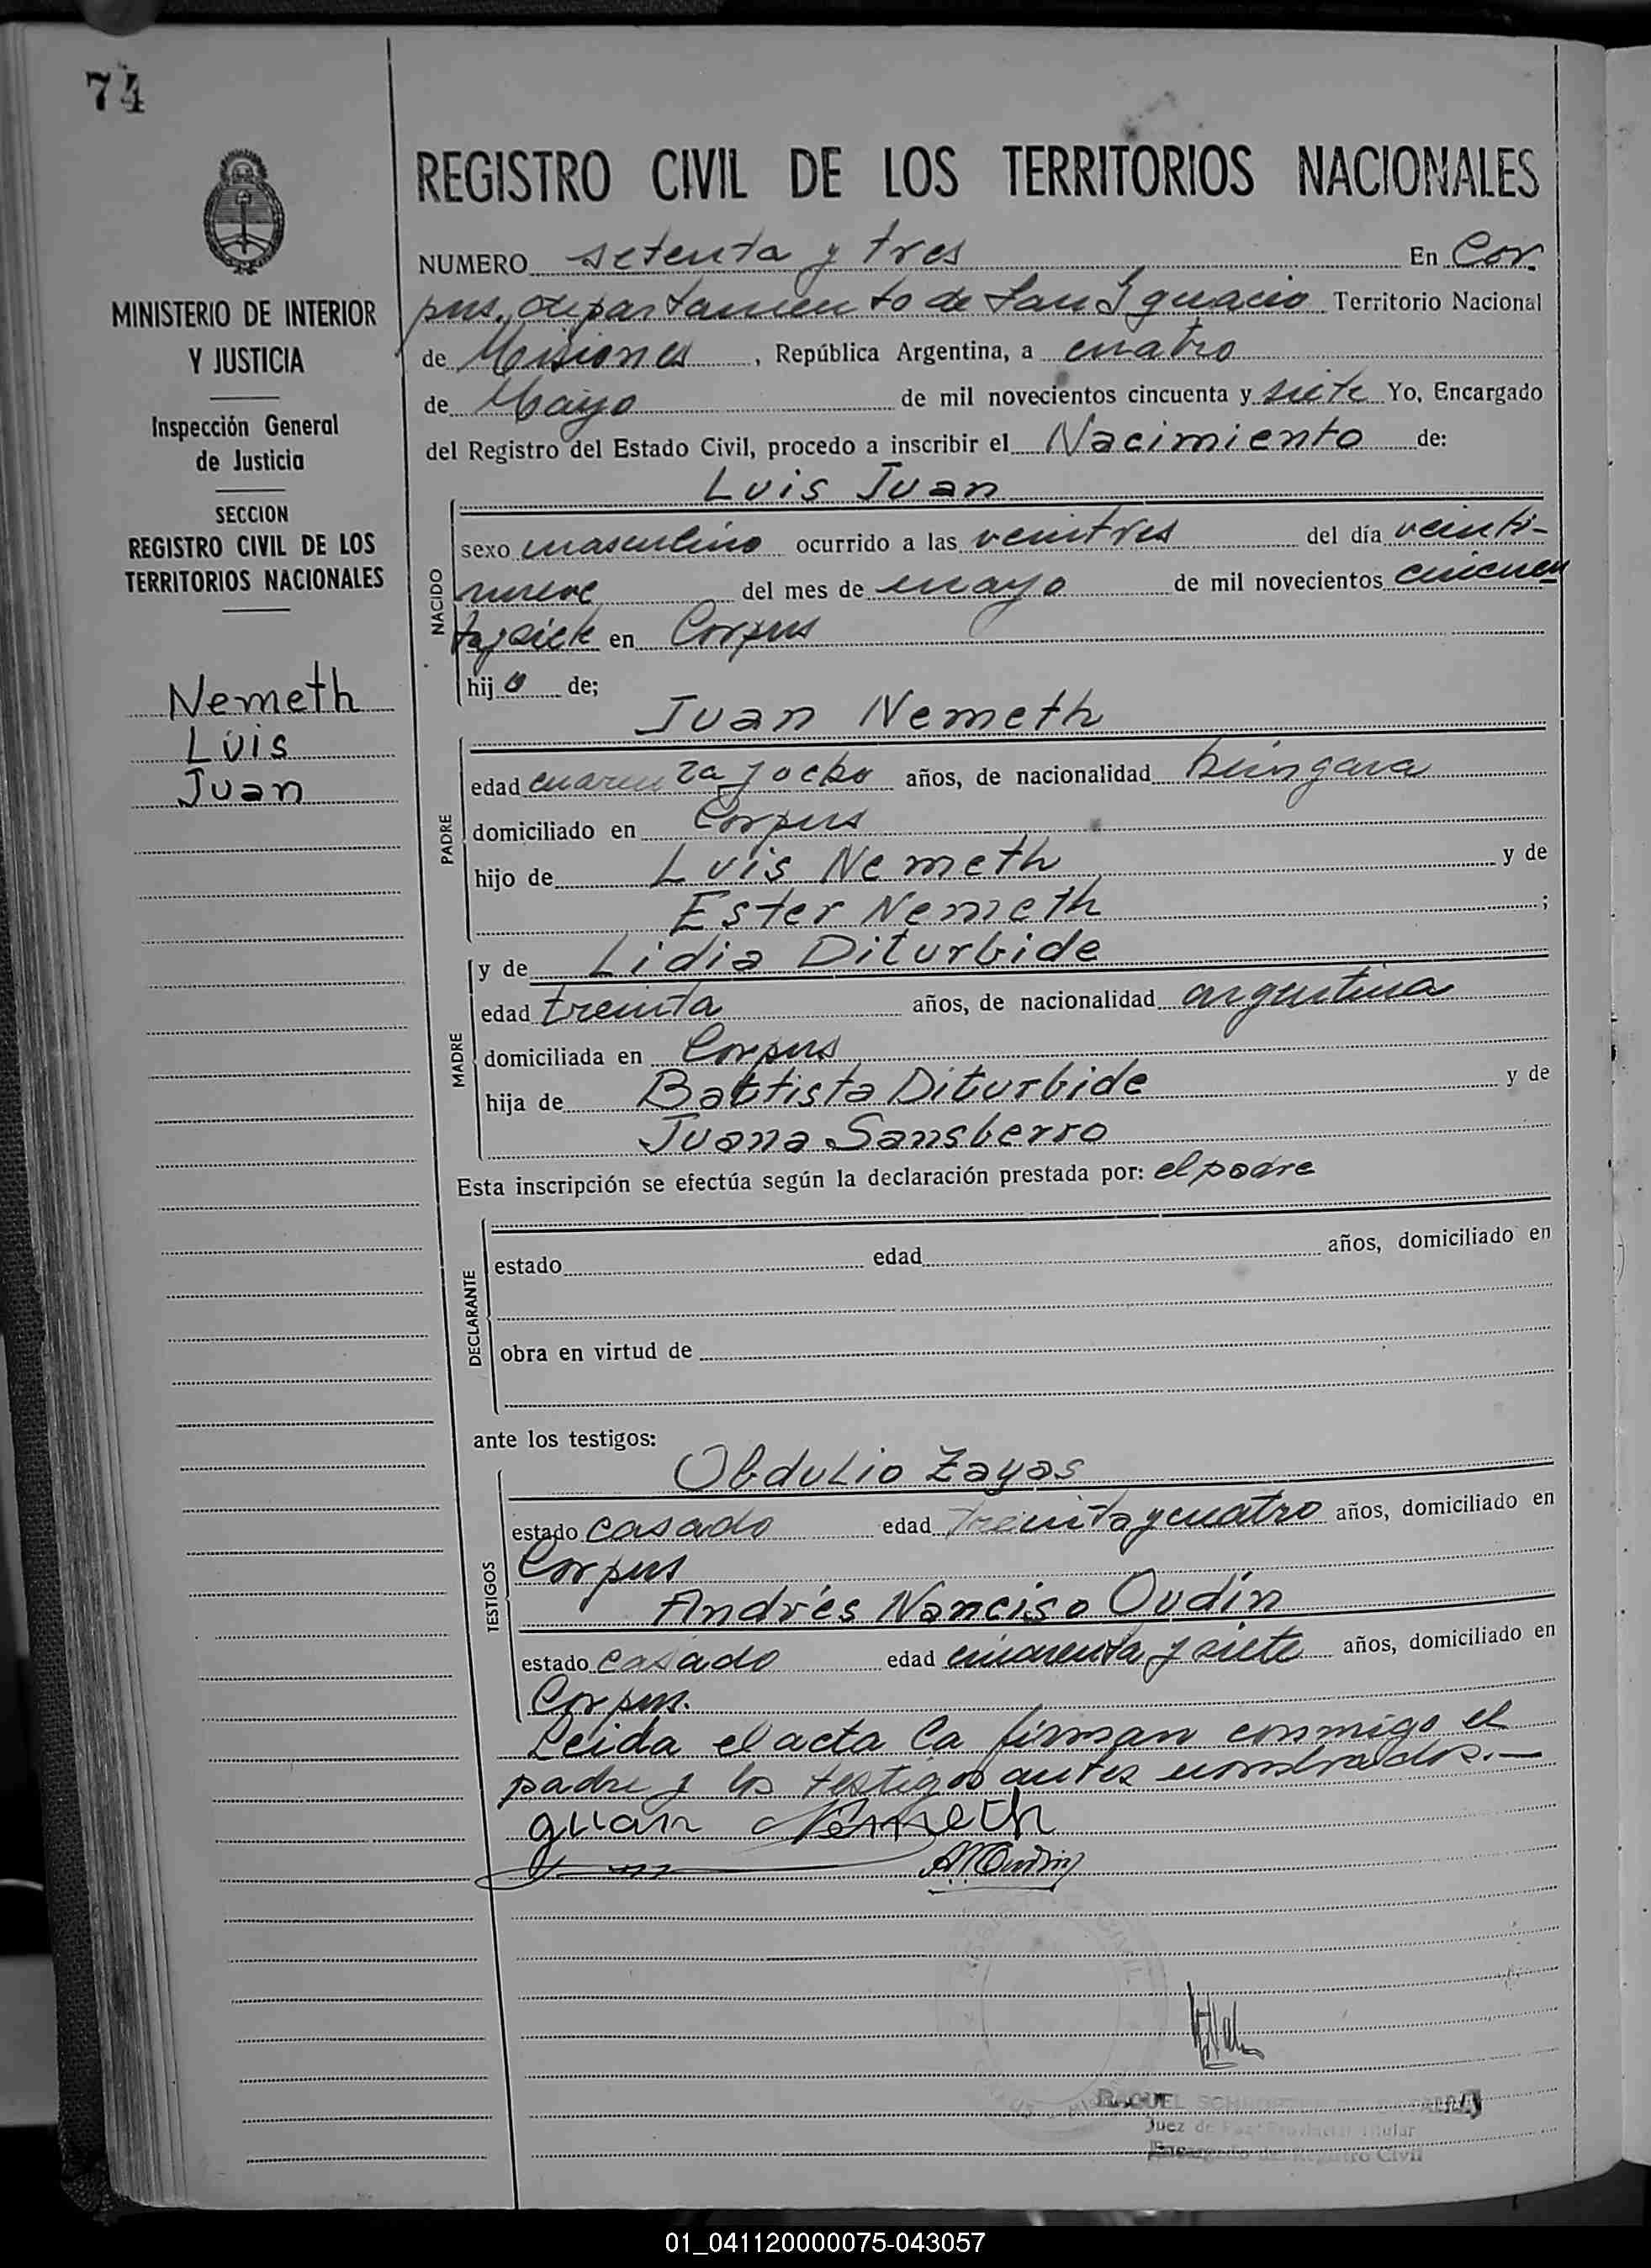 74
MINISTERIO DE INTERIOR
Y JUSTICIA
Inspección General
de Justicia
SECCION
REGISTRO CIVIL DE LOS
TERRITORIOS NACIONALES
Nemeth
Luis
Juan
REGISTRO CIVIL DE LOS TERRITORIOS NACIONALES
NUMERO setenta y tres En Cor
pus, departamento de San Ignacio Territorio Nacional
de Misiones, República Argentina, a cuatro
de Mayo de mil novecientos cincuenta y siete Yo, Encargado
del Registro del Estado Civil, procedo a inscribir el Nacimiento de:
Luis Juan
NACIDO
sexo masculino ocurrido a las veintres del día veinti-
nueve del mes de mayo de mil novecientos cincuen
tay siete en Corpus
hijo de;
Juan Nemeth
PADRE
edad cuarenta y ocho años, de nacionalidad húngara
domiciliado en Corpus
hijo de Luis Nemeth y de
Ester Nemeth ;
y de Lidia Diturbide
MADRE
edad treinta años, de nacionalidad argentina
domiciliada en Corpus
hija de Battista Diturbide y de
Juana Sansberro
Esta inscripción se efectúa según la declaración prestada por: el padre
DECLARANTE
estado edad años, domiciliado en
obra en virtud de
ante los testigos:
Obdulio Zayas
TESTIGOS
estado casado edad treinta y cuatro años, domiciliado en
Corpus
Andrés Nanciso Oudín
estado casado edad cuarenta y siete años, domiciliado en
Corpus.
Leida el acta la firman conmigo el
padre y los testigos antes nombrados.—
Juan Nemeth
ANOudin
RAQUEL
Juez de Paz Titular
Encargado del Registro Civil
01_041120000075-043057